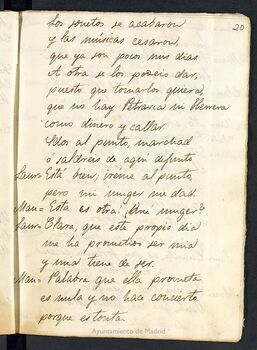 20
Los sonetos se acabaron
y las músicas cesaron,
que ya son pocos mis dias
A otra se los podeis dar,
puesto que tomarlos quiera,
que no hay Petrarca ni Herrera
como dinero y callar.
Idos al punto, marchad
ó saldreis de aqui difunto
Laur= Está bien, iréme al punto,
pero mi muger me dad.
Man= Esta es otra! Qué muger?
Laur= Clara, que este propio dia
me ha prometido ser mia
y mia tiene de ser.
Man= Palabra que ella prometa
es nula y no hace concierto
porque es tonta.
Ayuntamiento de Madrid